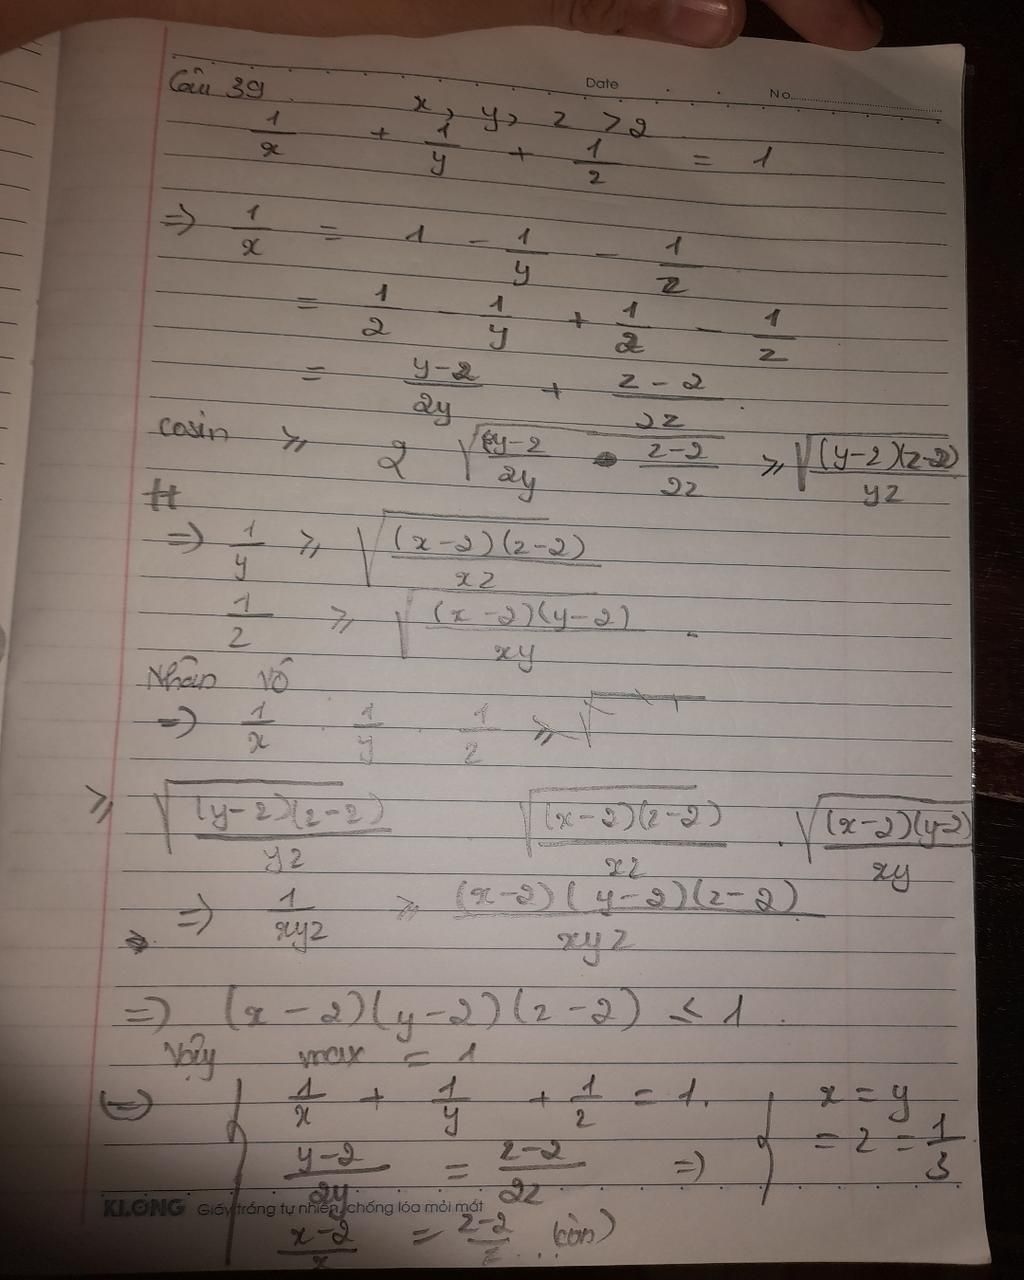 Date No
Câu 39
x, y, z > 2
1/x + 1/y + 1/z = 1
=> 1/x = 1 - 1/y - 1/z
= 1/2 - 1/y + 1/2 - 1/z
= (y-2)/2y + (z-2)/2z
cosin ≥ 2 √((y-2)/2y · (z-2)/2z) ≥ √((y-2)(z-2)/yz)
=> 1/y ≥ √((x-2)(z-2)/xz)
1/z ≥ √((x-2)(y-2)/xy)
Nhân vô
=> 1/x · 1/y · 1/z ≥ √
≥ √((y-2)(z-2)/yz) √((x-2)(z-2)/xz) · √((x-2)(y-2)/xy)
=> 1/xyz ≥ (x-2)(y-2)(z-2)/xyz
=> (x-2)(y-2)(z-2) ≤ 1
Vậy max = 1
(=) { 1/x + 1/y + 1/z = 1. } x = y
(y-2)/2y = (z-2)/2z => = z = 1/3
KLONG Giấy trắng tự nhiên, chống lóa mỏi mắt
(x-2)/x = (z-2)/z ...